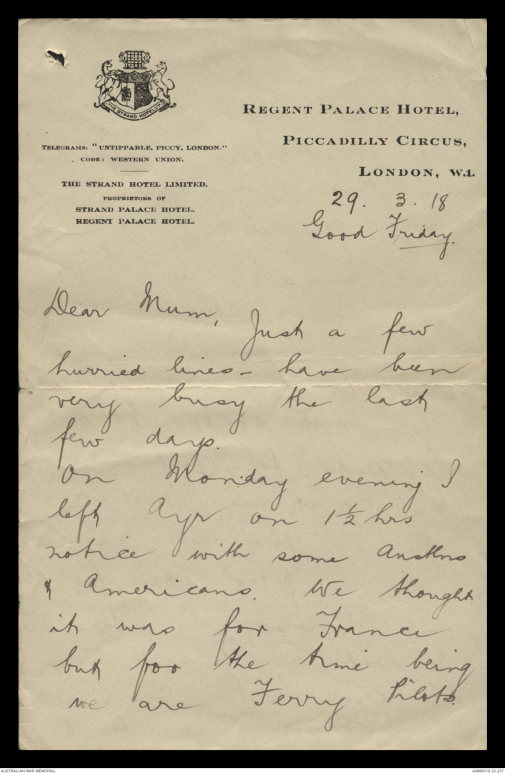 THE STRAND HOTEL LTD
REGENT PALACE HOTEL,
PICCADILLY CIRCUS,
LONDON, W.1.
TELEGRAMS: "UNTIPPABLE, PICCY, LONDON."
CODE: WESTERN UNION.
THE STRAND HOTEL LIMITED.
PROPRIETORS OF
STRAND PALACE HOTEL.
REGENT PALACE HOTEL.
29. 3. 18
Good Friday.
Dear Mum, Just a few
hurried lines - have been
very busy the last
few days.
On Monday evening I
left Ayr on 1½ hrs
notice with some Austlns
& Americans. We thought
it was for France
but foo the time being
we are Ferry Pilots.
AUSTRALIAN WAR MEMORIAL